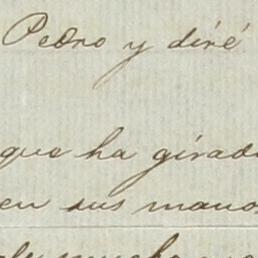 Pedro y diré
que ha girado
en sus manos
mucho